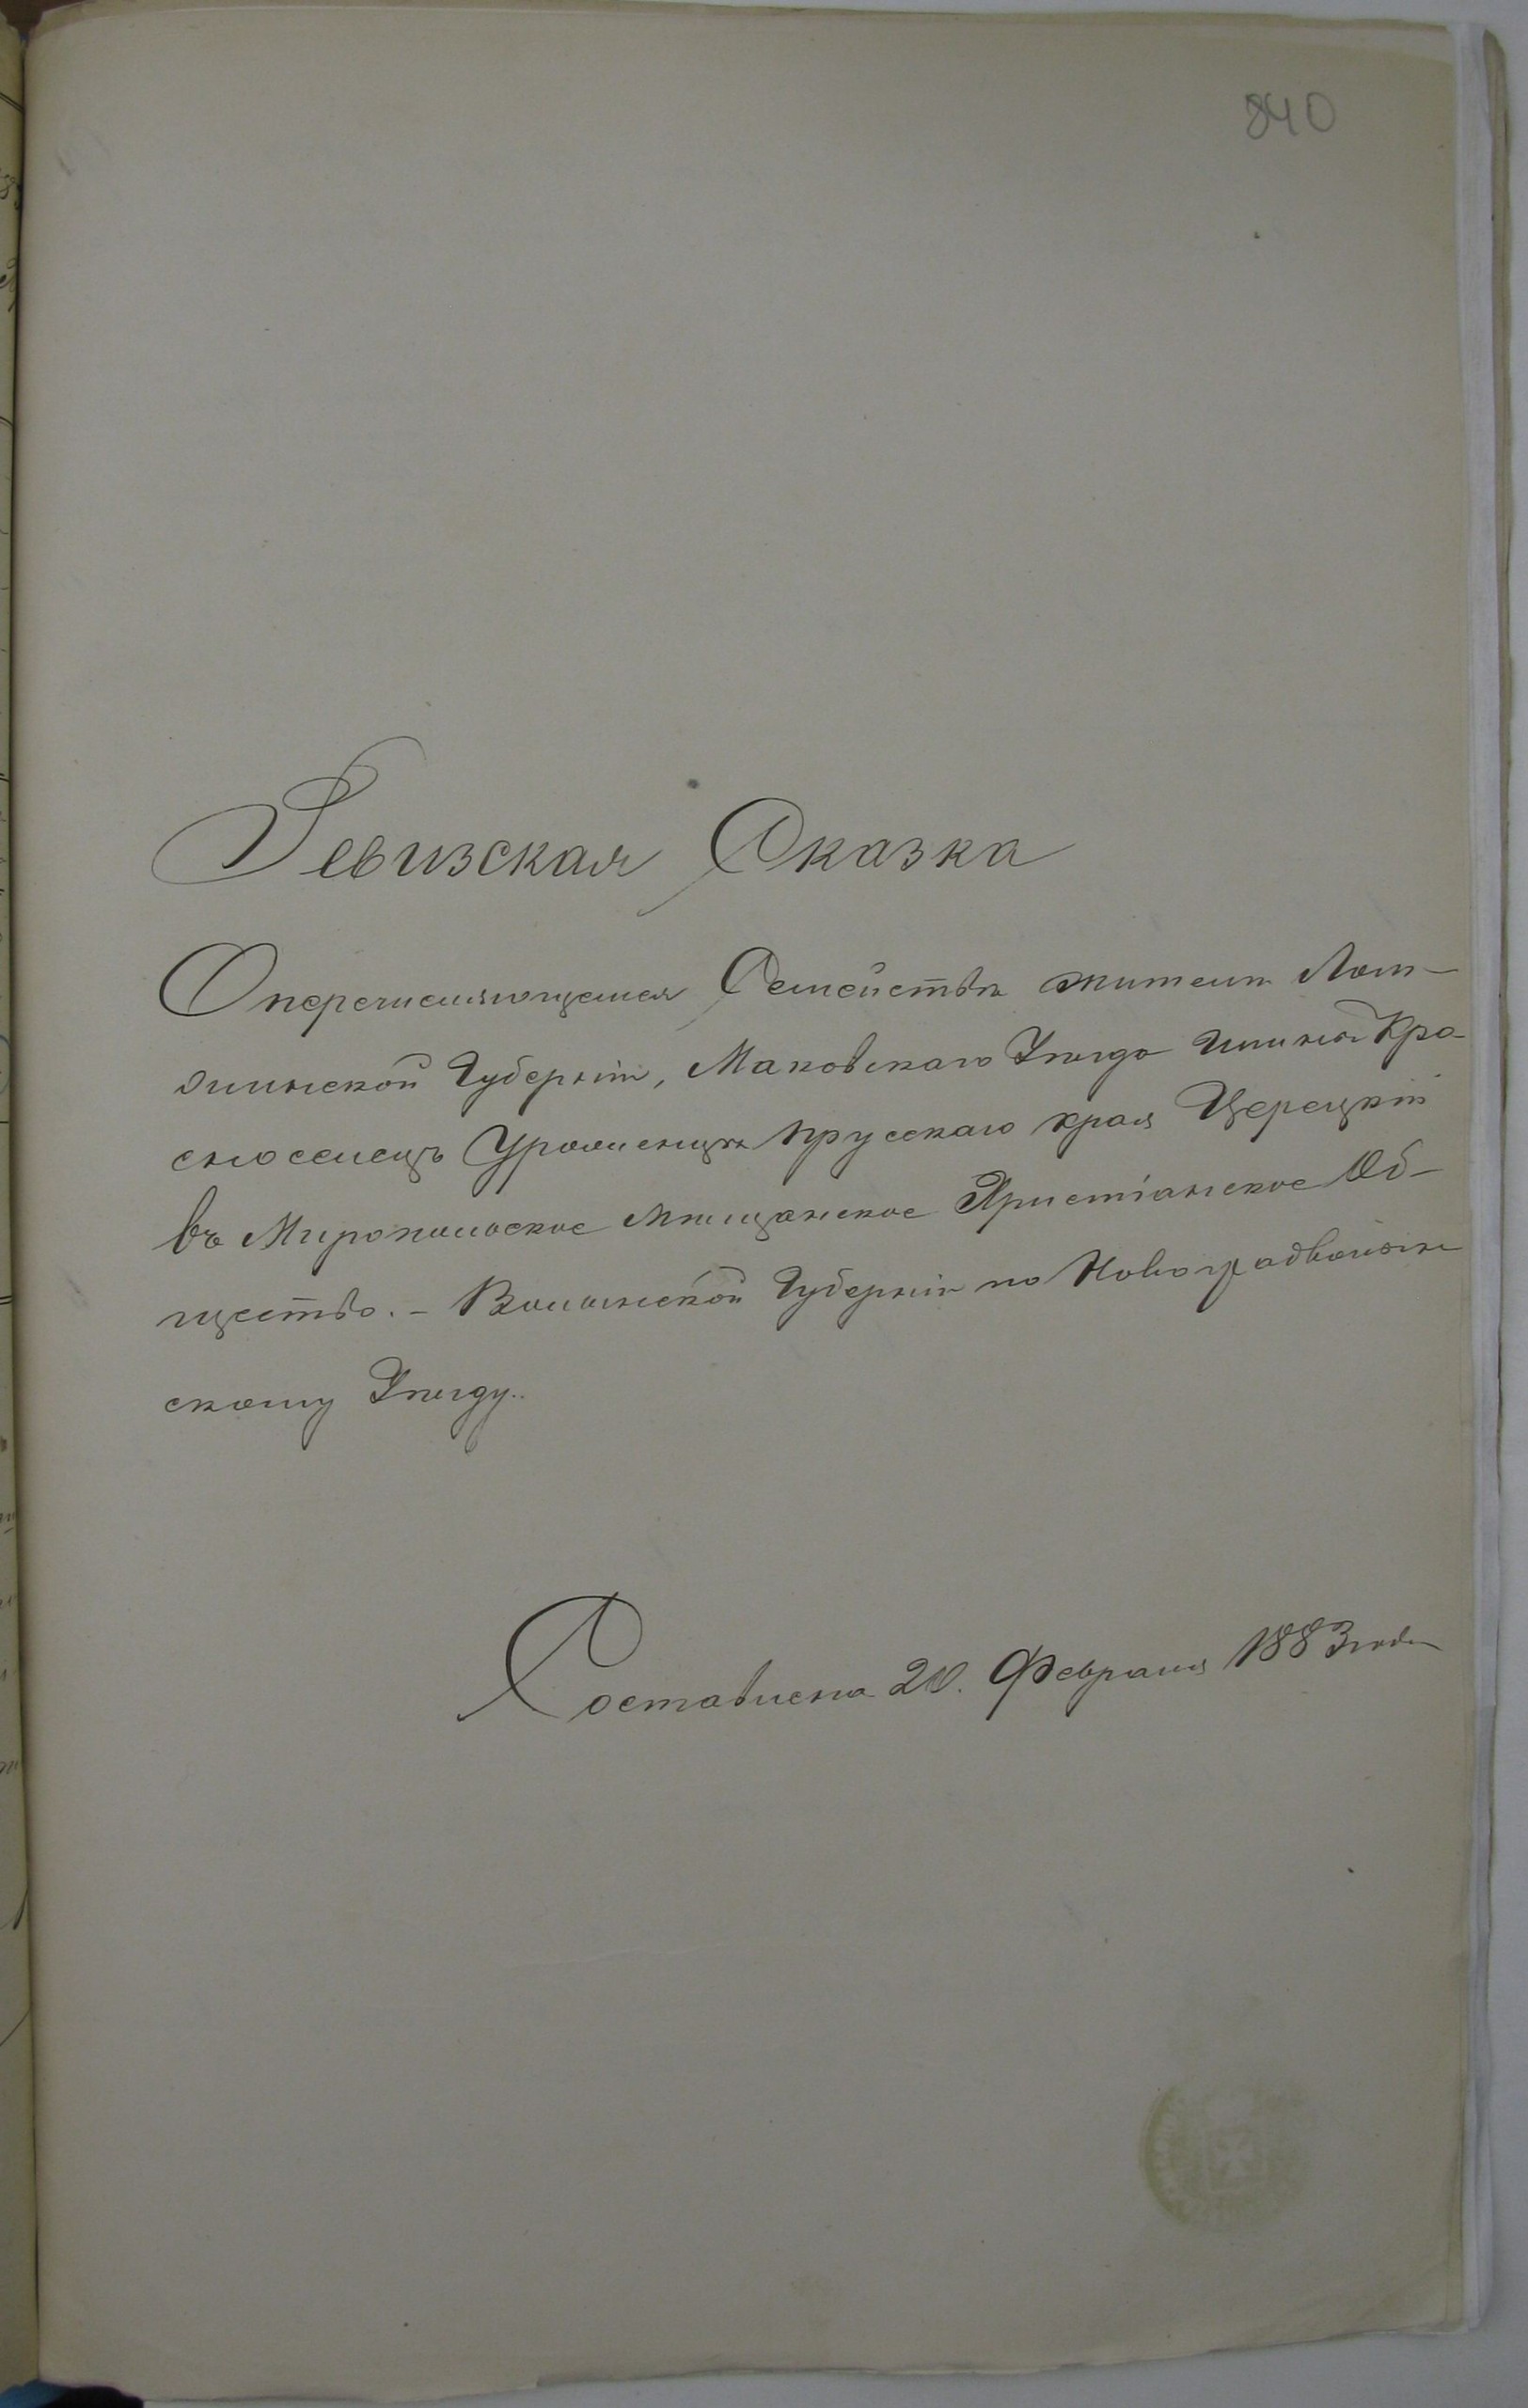 840
Ревизская Сказка
О перечисляющемся Семействѣ жителя Лом-
жинской Губерніи, Маковскаго Уѣзда Гмины Кра-
сносельцъ Уроженца Прусскаго края Церецкій
въ Миропольское мѣщанское Христіанское Об-
щество. - Волынской Губерніи по Новоградволын-
скому Уѣзду.
Составлена 20. Февраля 1883 года